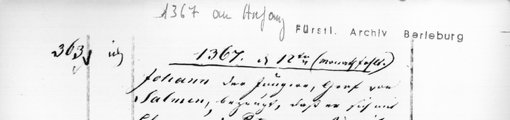 1367 am Anfang
Fürstl. Archiv Berleburg
363
1367. d 12ten (Monath fehlt.)
Johann der Jüngere, Graf von
Salmen, bezeugt, daß er sich mit